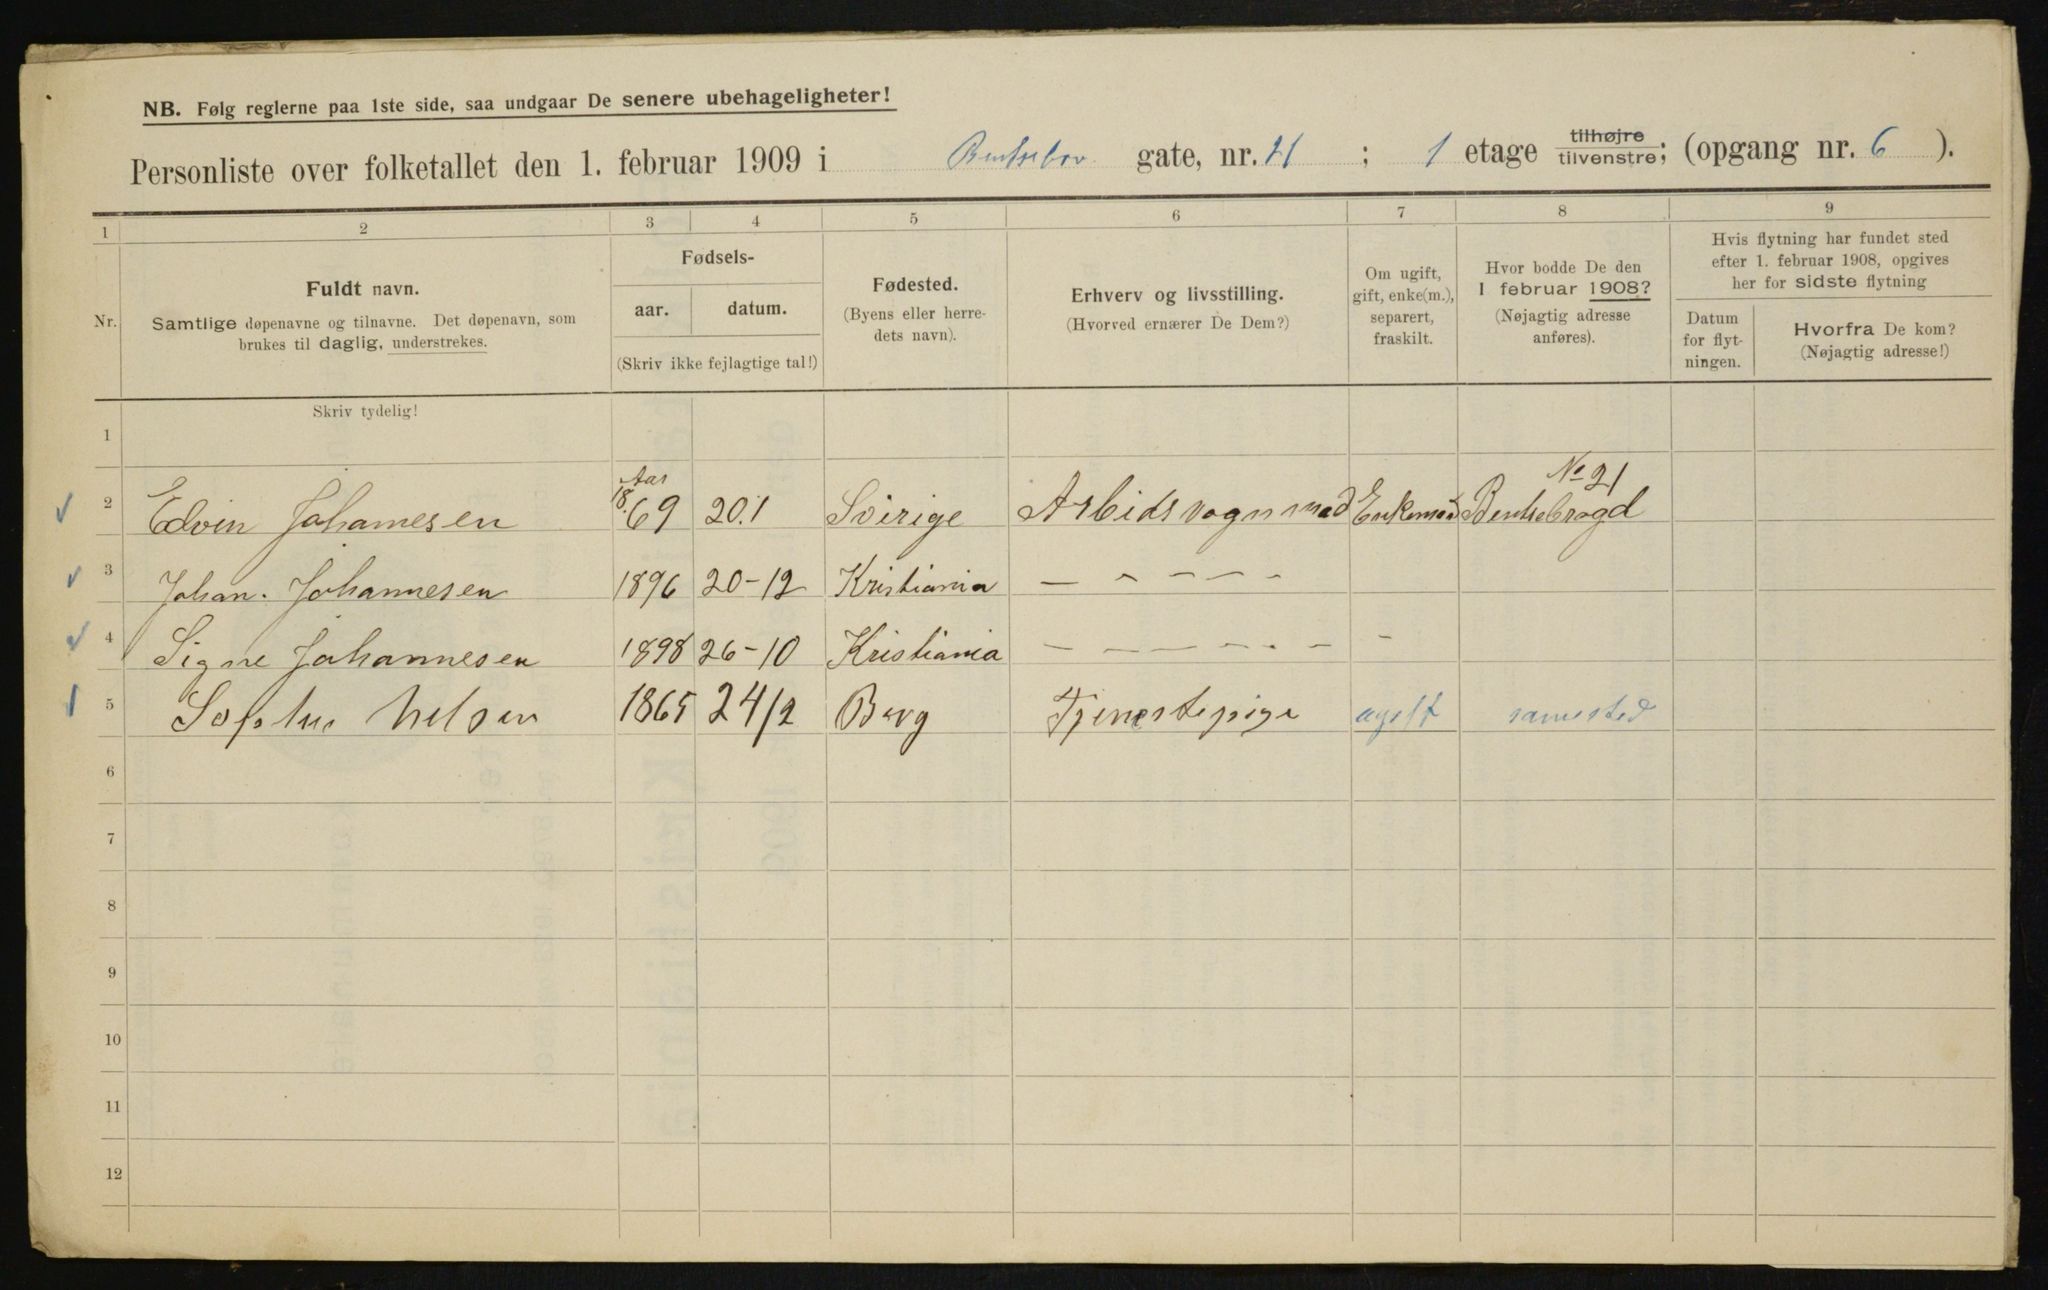 NB. Følg reglerne paa 1ste side, saa undgaar De senere ubehageligheter!
Personliste over folketallet den 1. februar 1909 i gate, nr. 21 ; 1 etage tilhøjre tilvenstre; (opgang nr. 6 ).
1 2 3 4 5 6 7 8 9
Nr.
Fuldt navn.
Samtlige døpenavne og tilnavne. Det døpenavn, som
brukes til daglig, understrekes.
Fødsels-
aar. datum.
(Skriv ikke fejlagtige tal!)
Fødested.
(Byens eller herre-
dets navn).
Erhverv og livsstilling.
(Hvorved ernærer De Dem?)
Om ugift,
gift, enke(m.),
separert,
fraskilt.
Hvor bodde De den
1 februar 1908?
(Nøjagtig adresse
anføres).
Hvis flytning har fundet sted
efter 1. februar 1908, opgives
her for sidste flytning
Datum
for flyt-
ningen.
Hvorfra De kom?
(Nøjagtig adresse!)
Skriv tydelig!
1
Aar No 21
2 Edvin Johannesen 18.69 20.1 Sverige Arbids vognmad Enkemad Bentsebrogd
3 Johan. Johannesen 1896 20-12 Kristiania — - - - -
4 Signe Johannesen 1898 26-10 Kristiania - - - - - - -
5 1865 24/2 Berg Tjenestepige ugift samested
6
7
8
9
10
11
12